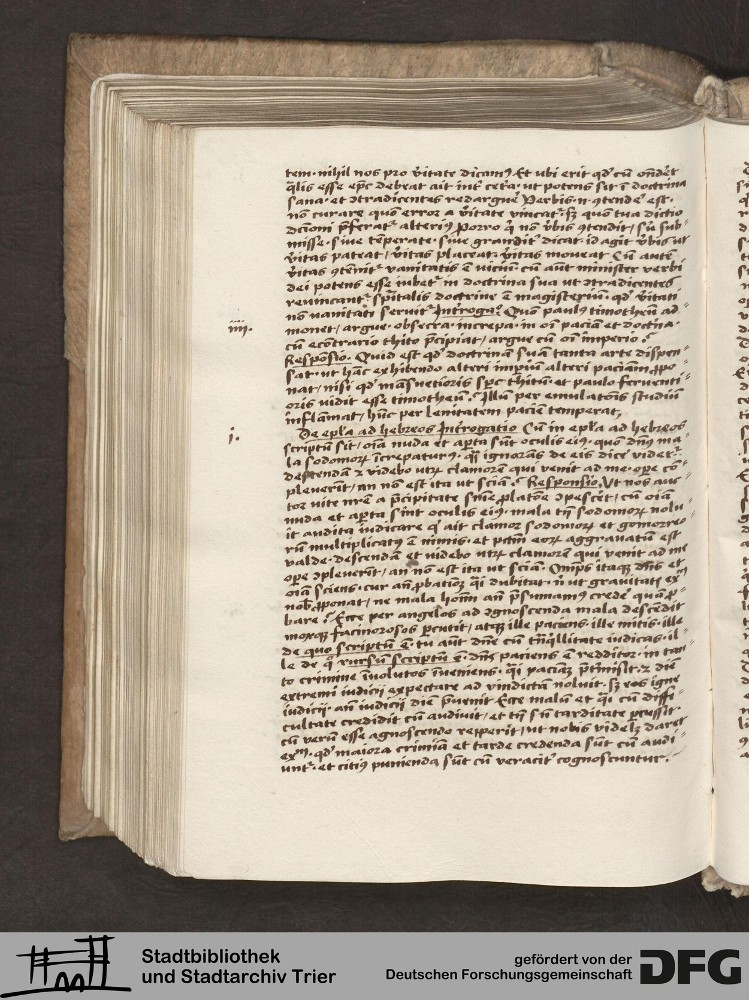 tem. nihil nos pro v̄itate dicam⁹. Et ubi erit qd̛ cū on̄det
q̄lis esse ep̄c debeat ait int̄ cet̄a. ut potens sit ī doctrina
sana. et ɔtradicentes redarguē verbis. n. ꝯtendē est.
nō curare quō error a v̄itate vincat̄. sꝫ quō tua dictio
dcc̄ioni p̄ferat̄ alteri⁹. Porro q̄ nō v̄bis ꝯtendit, siū sub-
misse. siue tēperate. siue grandit̄ dicat. id agit v̄bis ut
v̄itas pateat, v̄itas placeat, v̄itas moueat. Cū autē
minister verbi
dei potens esse iubet̄ in doctrina sua ut ɔtradicentes
reuincant̄. sp̄italis doctrine ē magisteriū. qd̛ v̄itati
nō vanitati seruit. Int̄roga. Quō paul⁹ timotheū ad-
iiii.
monet, argue. obsecra. increpa. in oī paciā et doct̄na.
cū ecōtrario thito p̄cipiat, argue cū oī imperio.
Respōsio. Quid est qd̛ doctrinā suā tanta arte dispen-
sat. ut hāc exhibendo alteri impiū alteri paciām ꝓpo-
nat, nisi qd̛ māsuetioris sp̄c thitū. et paulo feruenti-
oris vidit esse timotheū. Illū per emulatōis studiū
inflāmat, hūc per lenitatem paciē temperat,
i.
De ep̄l'a ad hebreos Int̄rogatio Cū in ep̄l'a ad hebreos
scriptū sit, oīa nuda et apta sūt oculis ei⁹. quō dn̄s ma-
la sodomoꝝ īcrepatur⁹. q̄si ignorās de eis dicē videt̄.
descendā ⁊ videbo utꝝ clamorē qui venit ad me. ope cō-
pleuerīt, an nō est ita ut sciā. Responsio. Ut nos auc-
tor vite nr̄e a p̄cipitate snīe ꝓlatōe ɔpescēt, cū oīa
nuda et apta sint oculis ei⁹. mala tn̄ sodomoꝝ nolu-
it audita iudicare q̄ ait clamor sodomoꝝ et gomorreo-
rū multiplicat⁹ ē nimis. et pctm̄ eoꝝ aggrauatū est
valde. descendā et videbo utꝝ clamorē qui venit ad me
ope ɔpleuerīt, an nō est ita ut sciā. Om̄ps itaqꝫ dn̄s et
oīa sciens. cur an̄ ꝓbatiōꝫ q̄i dubitat. ni ut grauitatꝭ exᵐ
nob̄ ꝓponat, ne mala hoīm an̄ p̄sumam⁹ credē quā ꝓ-
bare. Ecce per angelos ad ɔgnoscenda mala descēdit
moxqꝫ facinorosos p̄cutit, atqꝫ ille paciens. ille mitis. ille
de quo scriptū ē. tu aūt dn̄e cū tn̄q̄llitate iudicas. il-
le de q̄ rursū scriptū ē. dn̄s paciens ē redditor. in tan-
to crimine īuolutos īueniens. q̄i paciāꝫ p̄tmisit. ⁊ diē
extremi iudicij expectare ad vindictā noluit. sꝫ eos igne
iudicij. an̄ iudicij diē p̄uenit. Ecce malū et q̄i cū diffi-
cultate credidit cū audiuit, et tn̄ sn̄ tarditate p̄cussit.
cū verū esse agnoscendo repperit, ut nobis videlꝫ daret
exᵐ. qd̛ maiora crimīa et tarde credenda sūt cū audi-
unt̄. et citi⁹ punienda sūt cū veracit̄ cognoscuntur.
Stadtbibliothek
und Stadtarchiv Trier
gefördert von der
Deutschen Forschungsgemeinschaft
DFG